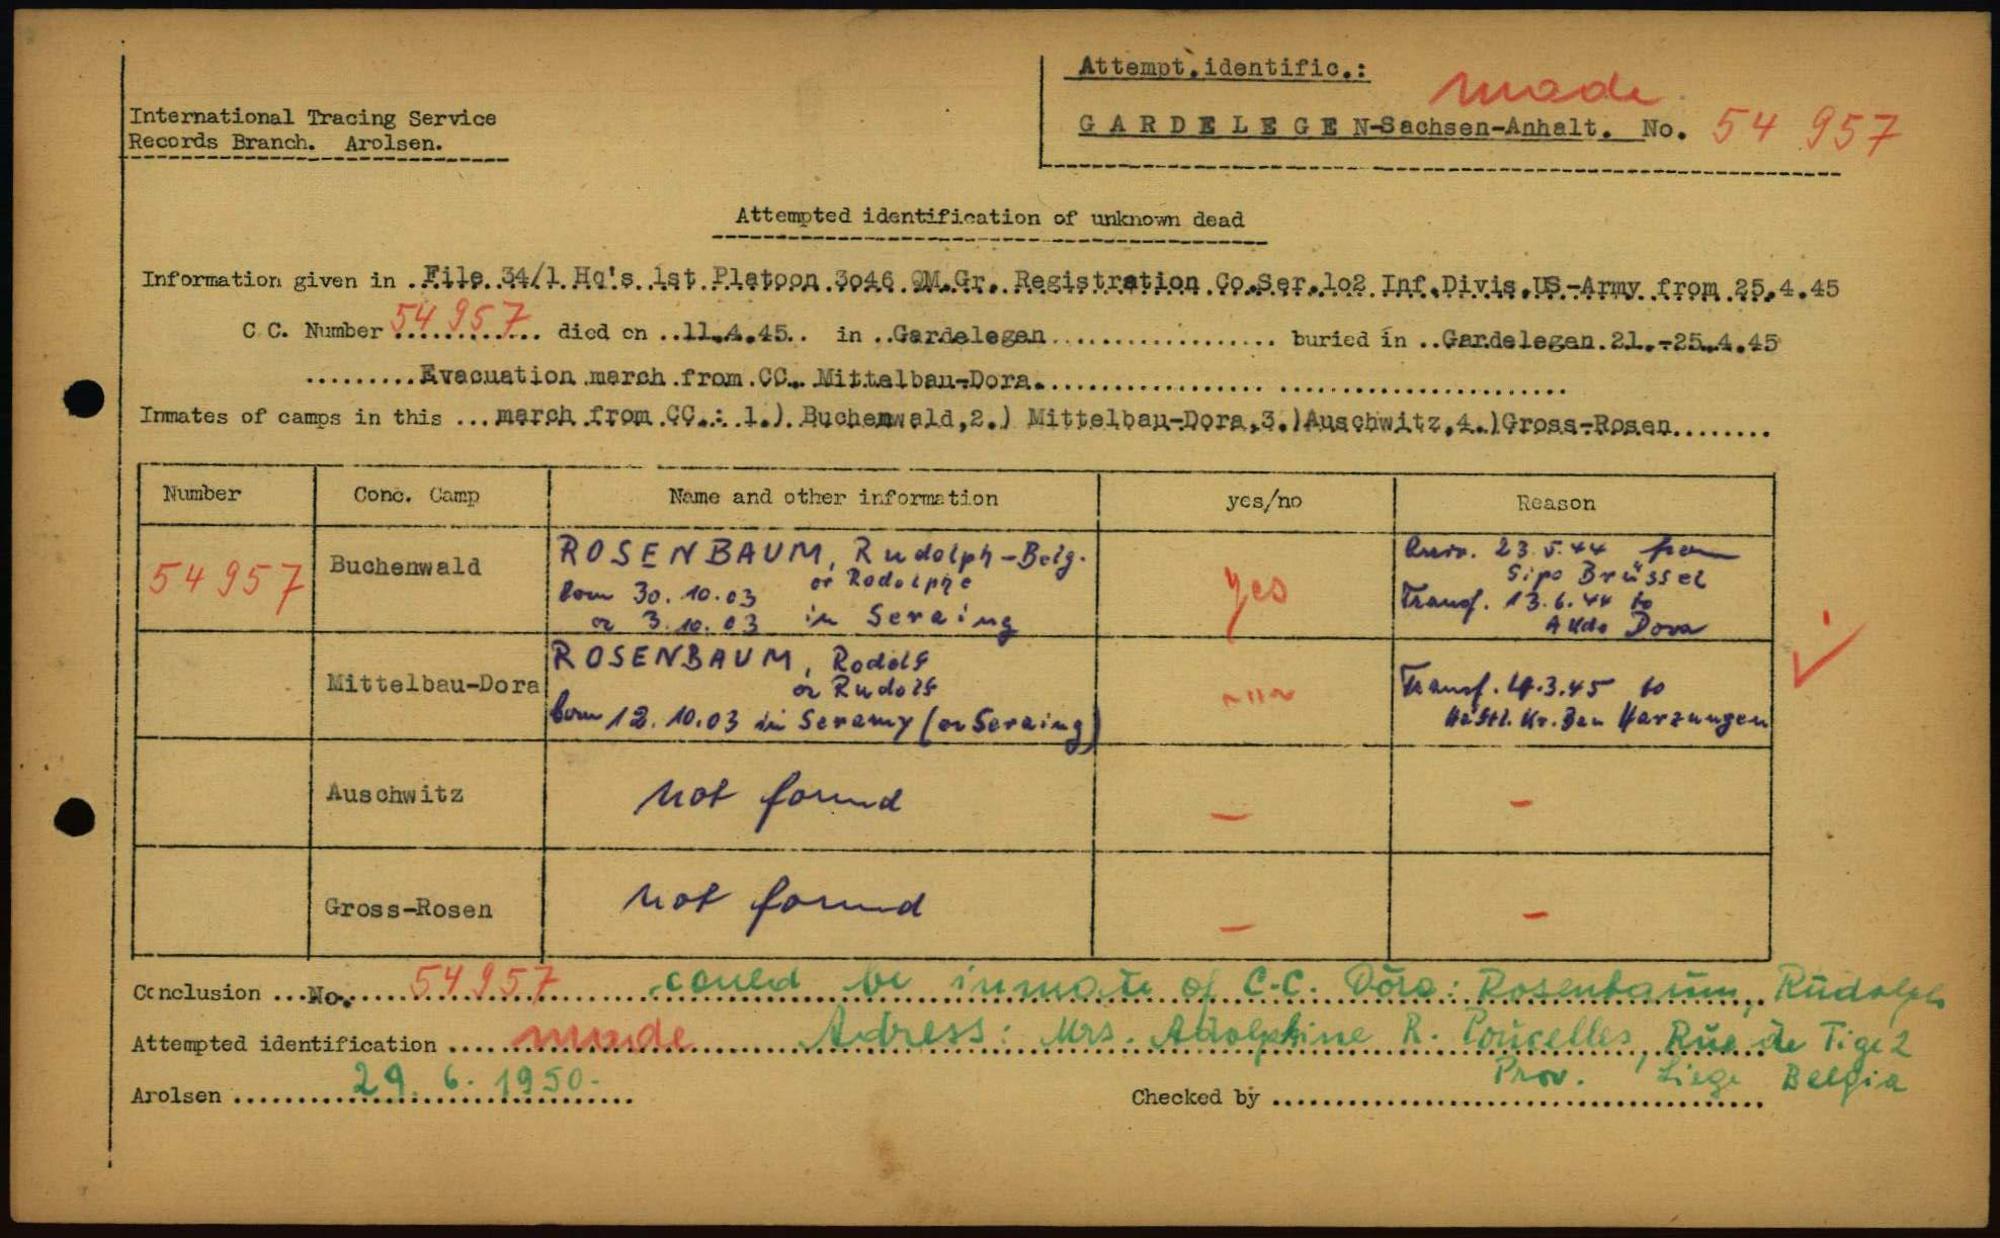 Attempt.identific.:
made
International Tracing Service
GARDELEGEN-Sachsen-Anhalt. No. 54 957
Records Branch. Arolsen.
Attempted identification of unknown dead
Information given in .File 34/1 Hq's 1st Platoon 3o46 QM.Gr. Registration Co.Ser.1o2 Inf.Divis.US-Army from 25.4.45
C C. Number 54 957 died on ..11.4.45.. in ..Gardelegen.................. buried in ..Gardelegen.21.-25.4.45
.........Evacuation march from CC. Mittelbau-Dora..................................
Inmates of camps in this ...march from CC.: 1.) Buchenwald,2.) Mittelbau-Dora,3.)Auschwitz,4.)Gross-Rosen........
Number Conc. Camp Name and other information yes/no Reason
54957 Buchenwald ROSENBAUM, Rudolph-Belg. yes
or Rodolphe
born 30.10.03
or 3.10.03 in Seraing
23.5.44 from
Sipo Brüssel
Transf. 13.6.44 to
AKdo Dora
Mittelbau-Dora ROSENBAUM, Rodolf
or Rudolf
born 12.10.03 in Seramy (or Seraing)
Transf. 4.3.45 to
Bau Harzungen
Auschwitz not found – –
Gross-Rosen not found – –
Conclusion ...No. 54957 could be inmate of C.C. Dora: Rosenbaum, Rudolph
Attempted identification .... made Adress: Mrs. Adolphine R. Poucelles, Rue de Tige 2
Prov. Liege Belgia
Arolsen 29. 6. 1950.
Checked by ........................................